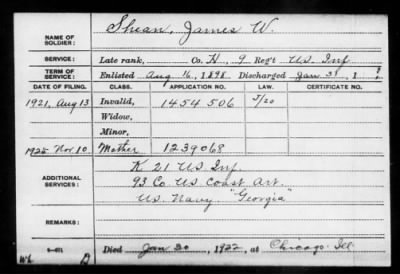 NAME OF SOLDIER: Shean, James W.
SERVICE: Late rank, Co. H, 9 Regt US. Inf
TERM OF SERVICE: Enlisted Aug 16, 1898 Discharged Jan 31, 1
DATE OF FILING. CLASS. APPLICATION NO. LAW. CERTIFICATE NO.
1921, Aug 13 Invalid, 1454506 J/20
Widow,
Minor,
1925 Nov 10 Mother 1239068
ADDITIONAL SERVICES: K 21 US Inf.
93 Co US Coast Art.
US. Navy "Georgia"
REMARKS:
Died Jan 30, 1922, at Chicago Ill